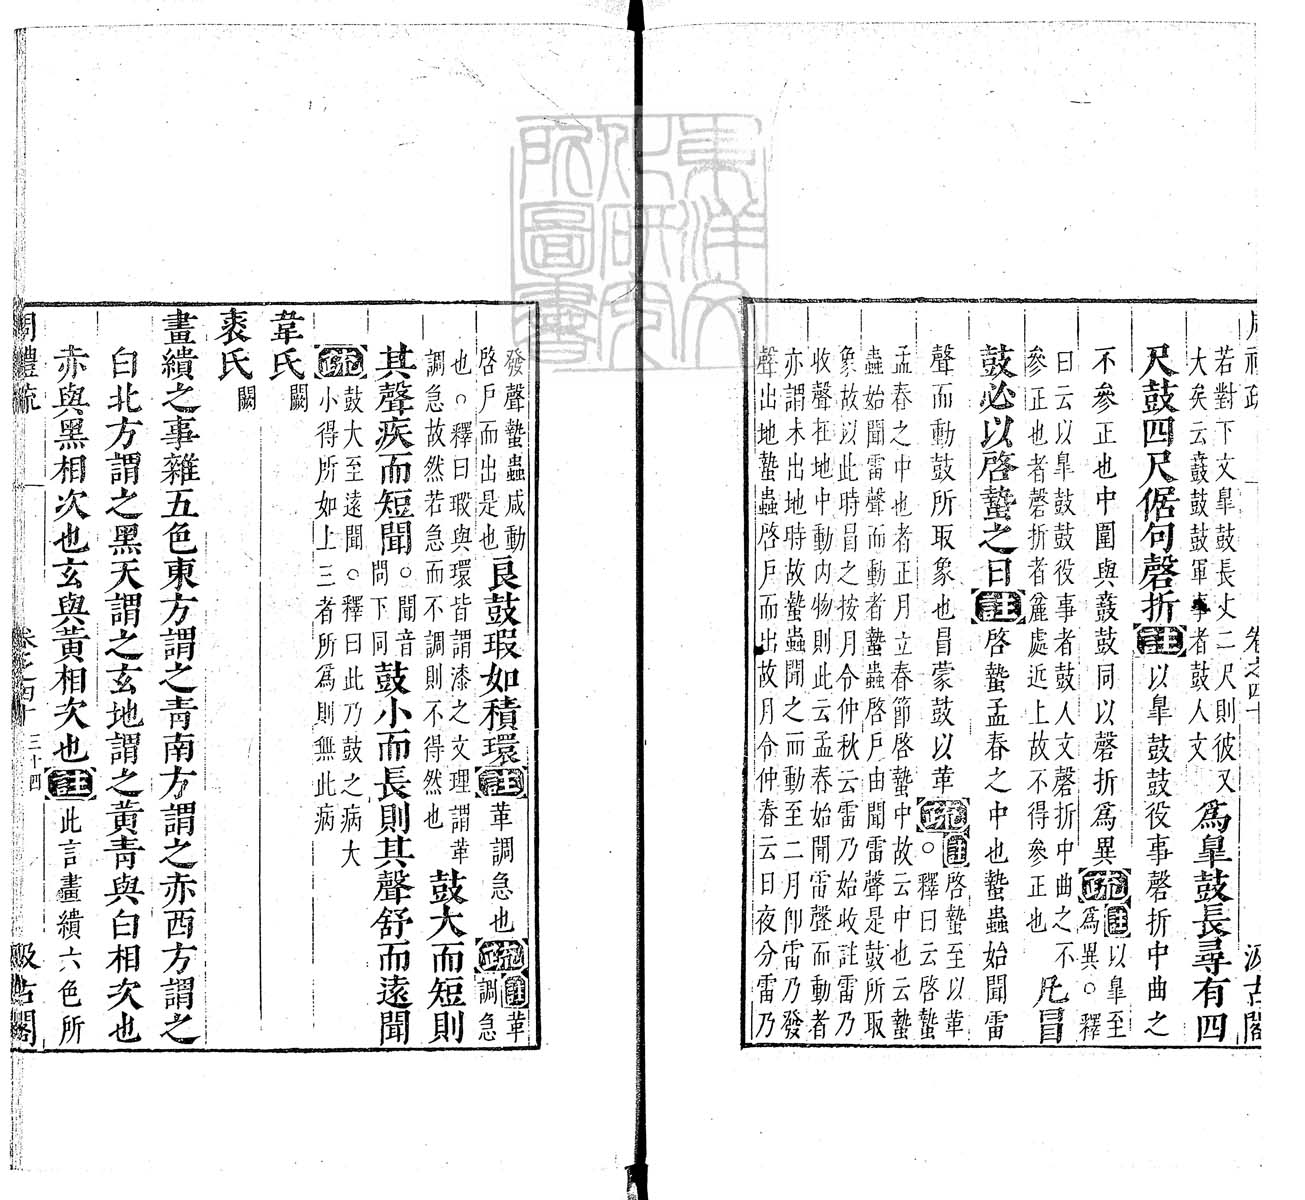 若對下文臯鼓長丈二尺則彼又
大矣云鼖鼓鼓軍事者鼓人文
爲臯鼓長尋有四
尺鼓四尺倨句磬折註以臯鼓鼓役事磬折中曲之
不參正也中圍與鼖鼓同以磬折爲異疏
註以臯至
爲異○釋
曰云以臯鼓鼓役事者鼓人文磬折中曲之不
參正也者磬折者麄處近上故不得參正也
凡冒
鼓必以啓蟄之日註啓蟄孟春之中也蟄蟲始聞雷
聲而動鼓所取象也冒蒙鼓以革疏
註啓蟄至以革
○釋曰云啓蟄
孟春之中也者正月立春節啓蟄中故云中也云蟄
蟲始聞雷聲而動者蟄蟲啓戶由聞雷聲是鼓所取
象故以此時冒之按月令仲秋云雷乃始收註雷乃
收聲在地中動內物則此云孟春始聞雷聲而動者
亦謂未出地時故蟄蟲聞之而動至二月卽雷乃發
聲出地蟄蟲啓戶而出故月令仲春云日夜分雷乃
發聲蟄蟲咸動
啓戶而出是也
良鼓瑕如積環註革調急也疏
註革
調急
也○釋曰瑕與環皆謂漆之文理謂革
調急故然若急而不調則不得然也
鼓大而短則
其聲疾而短聞
○聞音
問下同
鼓小而長則其聲舒而遠聞
疏
鼓大至遠聞○釋曰此乃鼓之病大
小得所如上三者所爲則無此病
韋氏闕
裘氏闕
畫繢之事雜五色東方謂之青南方謂之赤西方謂之
白北方謂之黑天謂之玄地謂之黃青與白相次也
赤與黑相次也玄與黃相次也註此言畫繢六色所
周禮疏
卷之四十
三十四
汲古閣